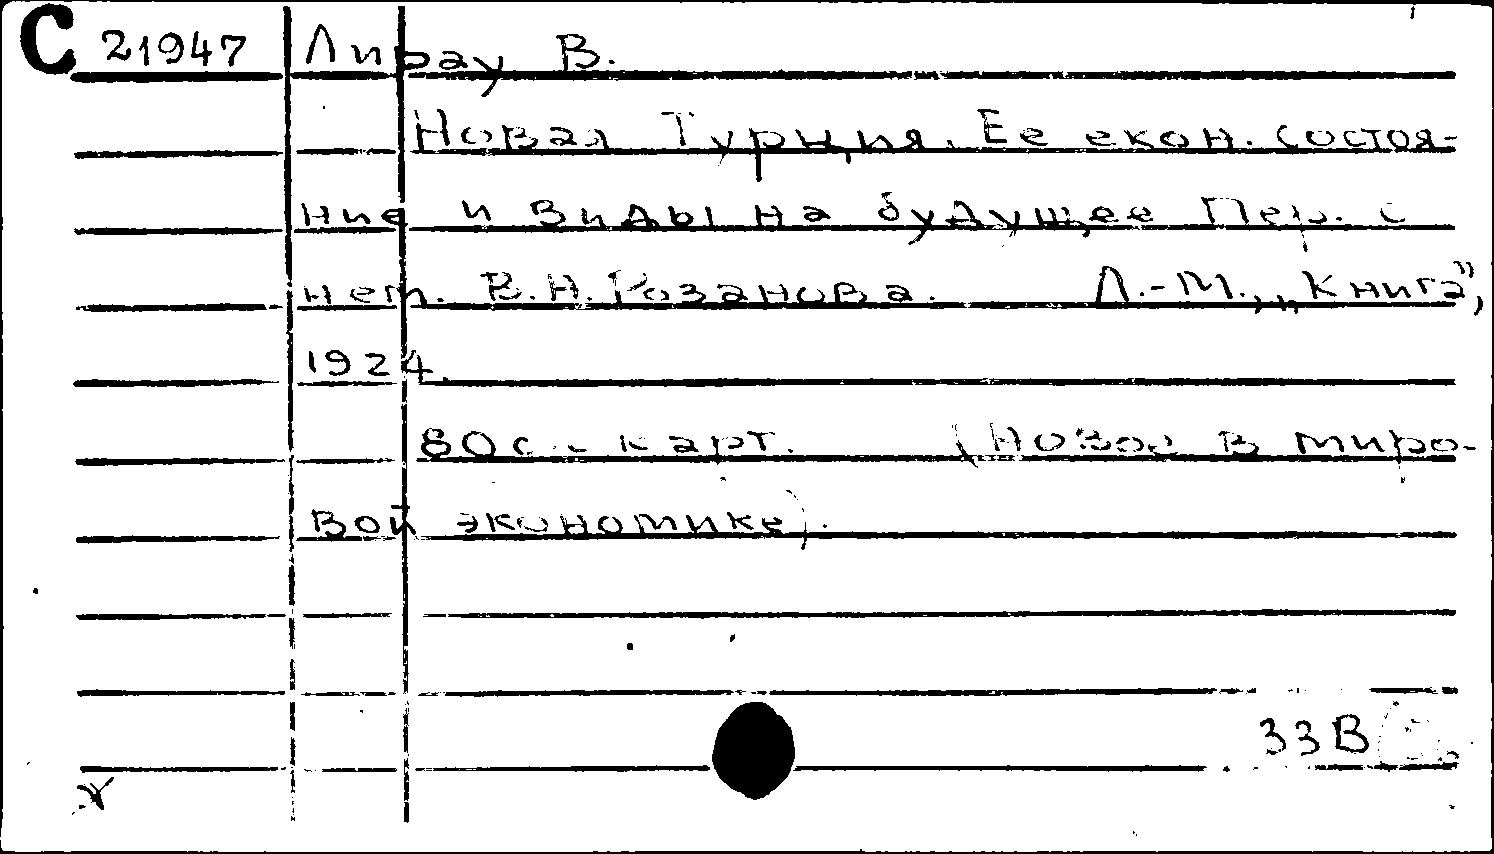 С 21947 Лирау В.
Новая Турция. Ее екон. состоя-
ние и виды на будущее Пер. с
нем. В.Н. Розанова. Л.-М., „Книга”,
1924.
80 с. к карт. (Новое в миро-
вой экономике).
33В